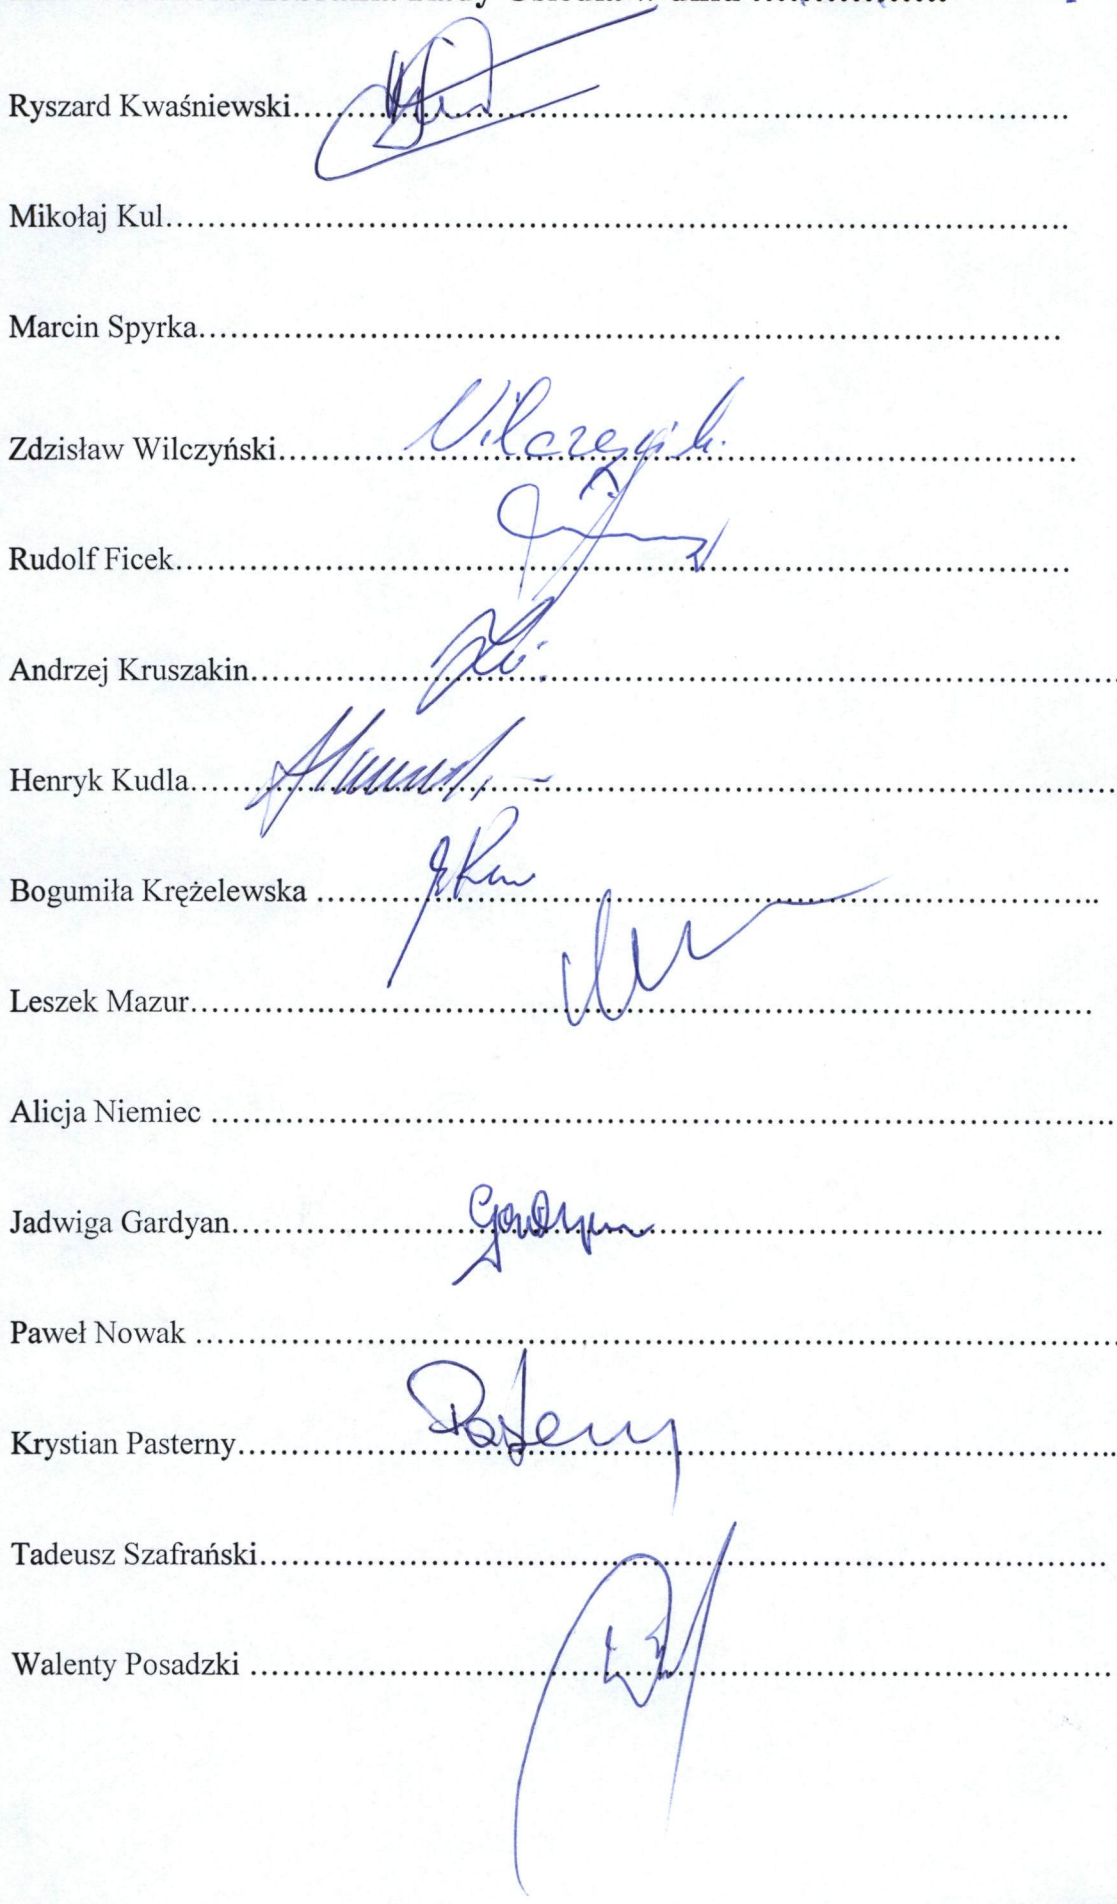 Rady Osiedla w dniu ........................
Ryszard Kwaśniewski........................
Mikołaj Kul........................
Marcin Spyrka........................
Zdzisław Wilczyński........................
Rudolf Ficek........................
Andrzej Kruszakin........................
Henryk Kudla........................
Bogumiła Krężelewska ........................
Leszek Mazur........................
Alicja Niemiec ........................
Jadwiga Gardyan........................ Gardyan
Paweł Nowak ........................
Krystian Pasterny........................ Pasterny
Tadeusz Szafrański........................
Walenty Posadzki ........................